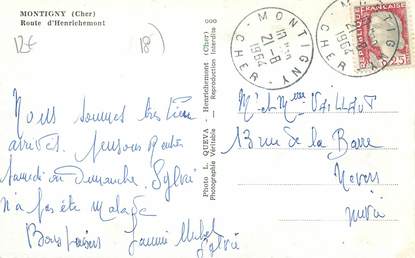 MONTIGNY (Cher)
Route d'Henrichemont
12€
18
Nous sommes très bien
arrivés. pensons rentrer
Samedi ou Dimanche. Sylvie
n'a pas été malade
Bons baisers Jeannine Michel
Sylvie
Photo L. QUEVA - Henrichemont (Cher)
Photographie Véritable - Reproduction Interdite
MONTIGNY
21-8
1964
CHER
MONTIGNY
21-8
1964
CHER
REPUBLIQUE FRANCAISE
0,25
M et Mme VAILLAUT
13 rue de la Barre
Nevers
Nièvre